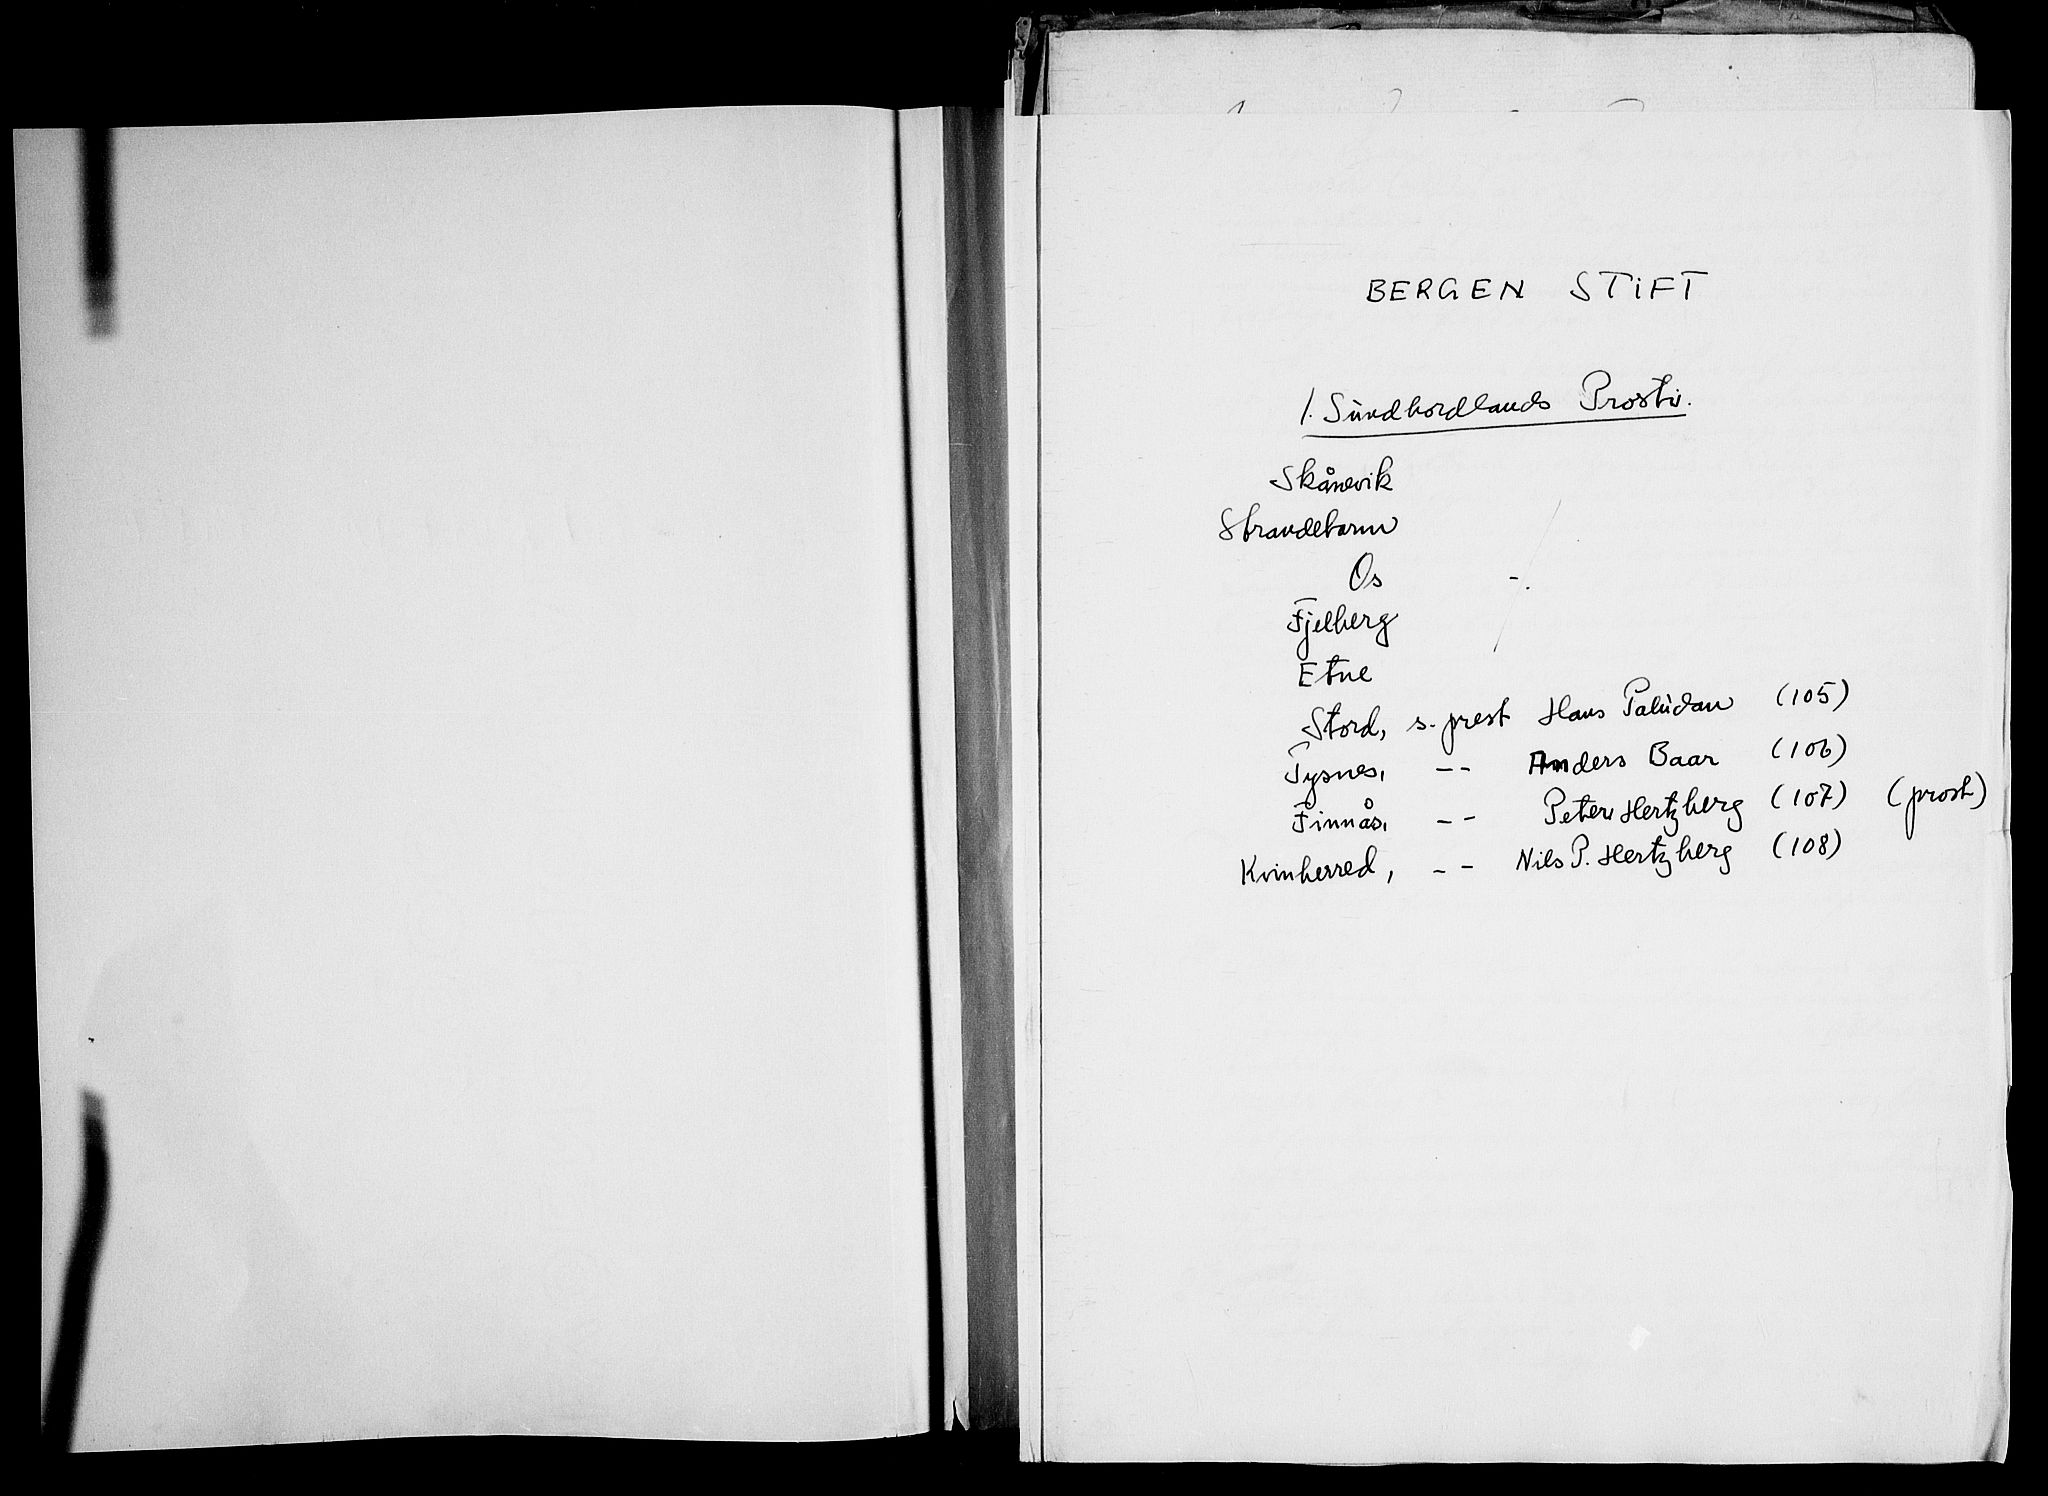 BERGEN STIFT
1. Sundhordlands Prosti.
Skånevik
Strandebarm
Os -.
Fjelberg
Etne
Stord, s. prest Hans Paludan (105)
Tysnes, -- Anders Baar (106)
Finnås, -- Peter Hertzberg (107) (prost)
Kvinherred, -- Nils P. Hertzberg (108)